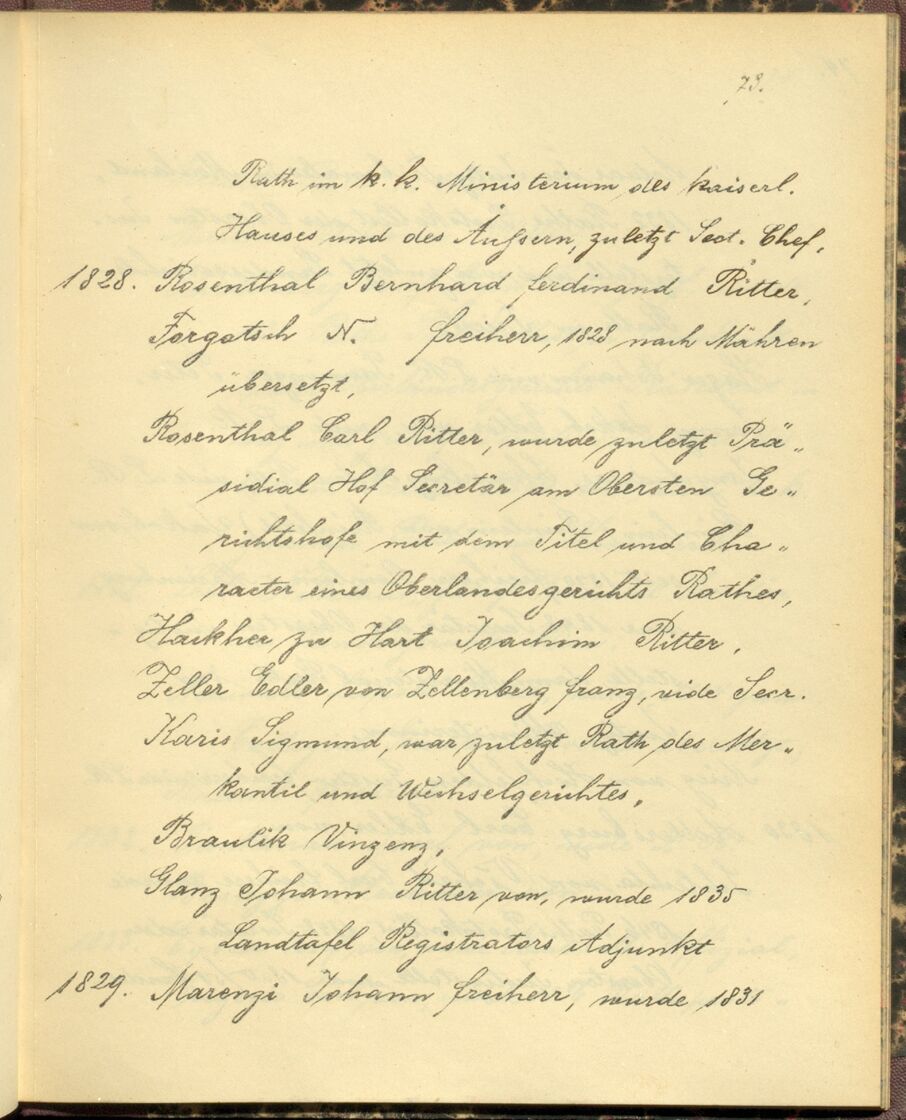 73.
Rath im k. k. Ministerium des kaiserl.
Hauses und des Äußern, zuletzt Sect. Chef,
1828. Rosenthal Bernhard Ferdinand Ritter,
Forgatsch N. Freiherr, 1828 nach Mähren
übersetzt,
Rosenthal Carl Ritter, wurde zuletzt Prä„
sidial Hof Secretär am Obersten Ge„
richtshofe mit dem Titel und Cha„
racter eines Oberlandesgerichts Rathes,
Hackher zu Hart Joachim Ritter,
Zeller Edler von Zellenberg Franz, vide Secr.
Karis Sigmund, war zuletzt Rath des Mer„
kantil und Wechselgerichtes,
Braulik Vinzenz,
Glanz Johann Ritter von, wurde 1835
Landtafel Registrators Adjunkt
1829. Marenzi Johann Freiherr, wurde 1831